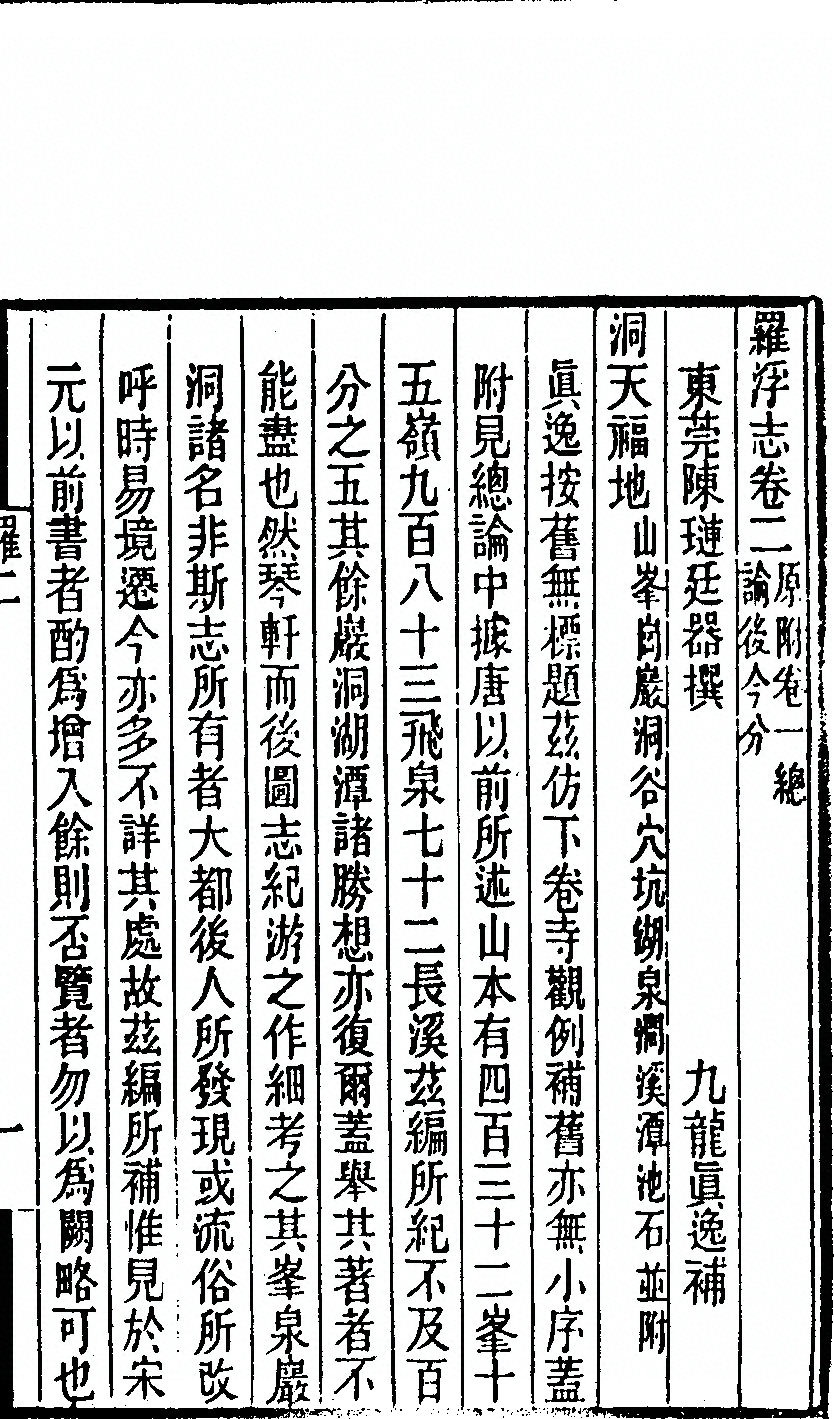 羅浮志卷二原附卷一總論後今分
東莞陳璉廷器撰　九龍眞逸補
洞天福地山峯自巖洞谷穴坑湖泉澗溪潭池石並附
眞逸按舊無標題茲仿下卷寺觀例補舊亦無小序蓋
附見總論中據唐以前所述山本有四百三十二峯十
五嶺九百八十三飛泉七十二長溪茲編所紀不及百
分之五其餘巖洞湖潭諸勝想亦復爾蓋舉其著者不
能盡也然琴軒而後圖志紀游之作細考之其峯泉巖
洞諸名非斯志所有者大都後人所發現或流俗所改
呼時易境遷今亦多不詳其處故茲編所補惟見於宋
元以前書者酌爲增入餘則否覽者勿以爲闕略可也
羅二
一